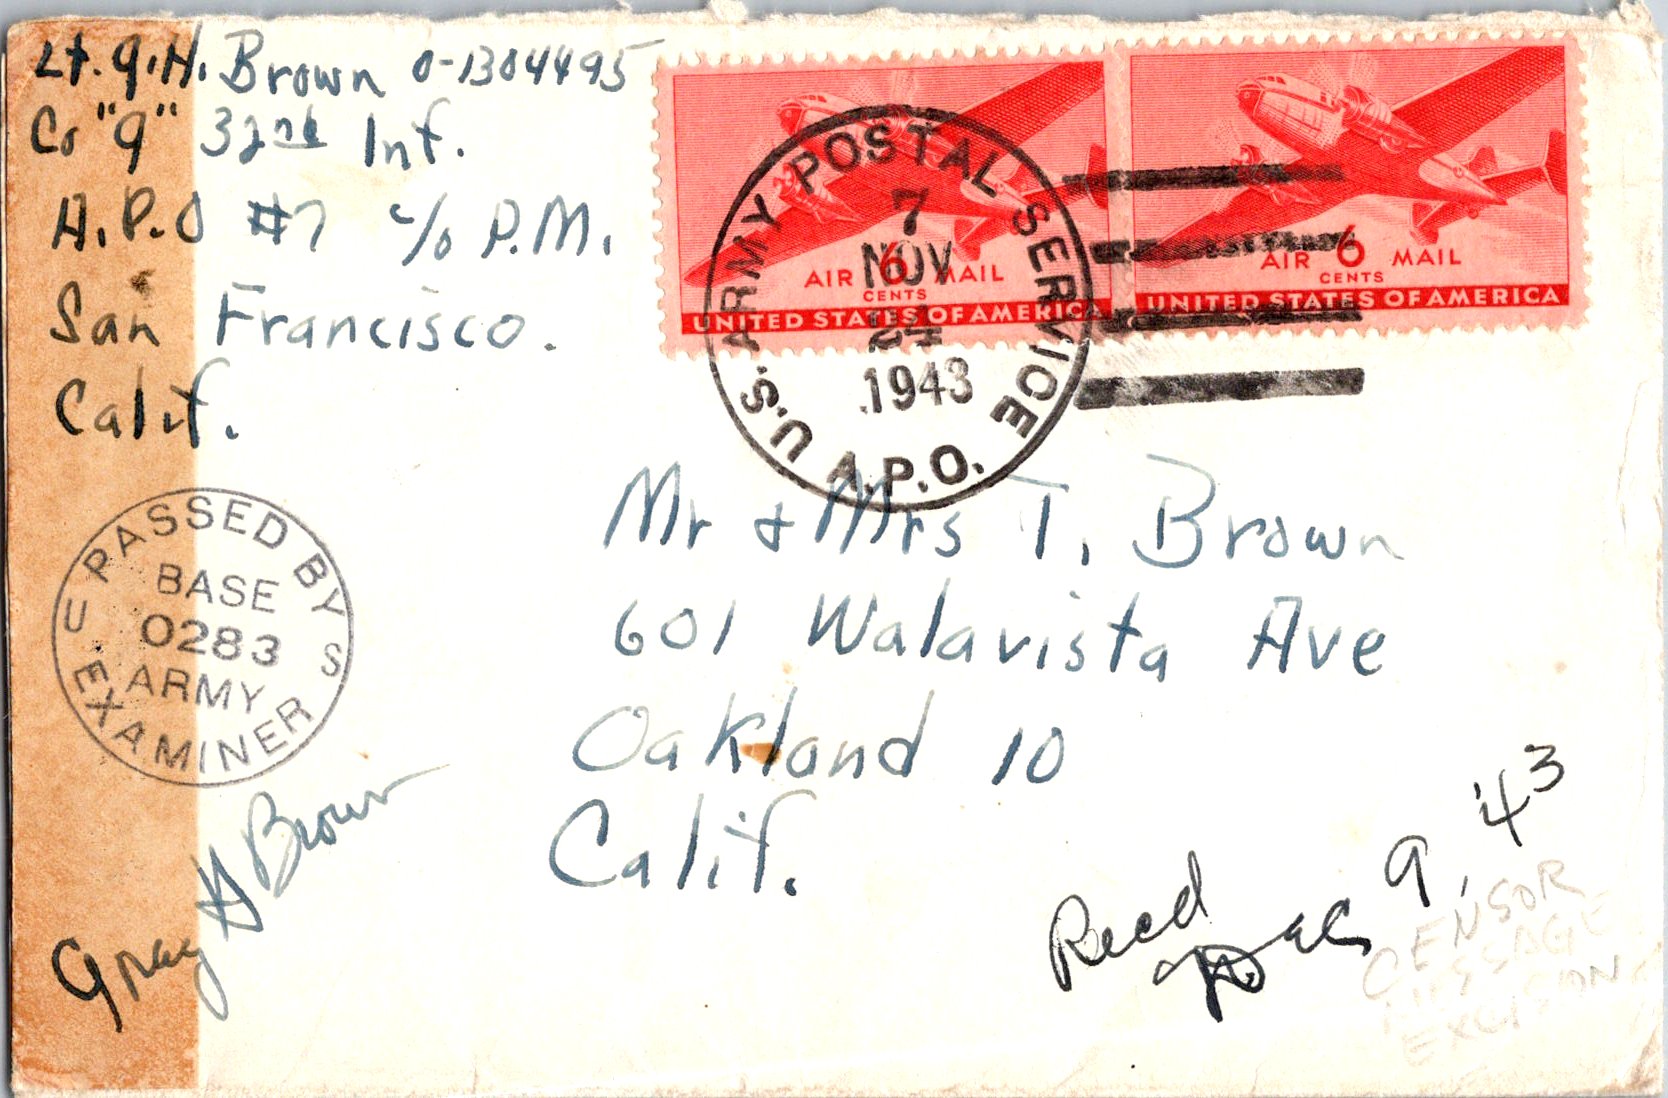 Lt. G.H. Brown O-1304495
Co "G" 32nd Inf.
A.P.O #7 c/o P.M.
San Francisco.
Calif.
AIR 6 MAIL
CENTS
UNITED STATES OF AMERICA
AIR 6 MAIL
CENTS
UNITED STATES OF AMERICA
U.S. ARMY POSTAL SERVICE
7
NOV
1943
A.P.O.
PASSED BY
U S
BASE
0283
ARMY
EXAMINER
Mr & Mrs T. Brown
601 Walavista Ave
Oakland 10
Calif.
Gray H Brown
Recd
Dec 9, '43
CENSOR
MESSAGE
EXCISION